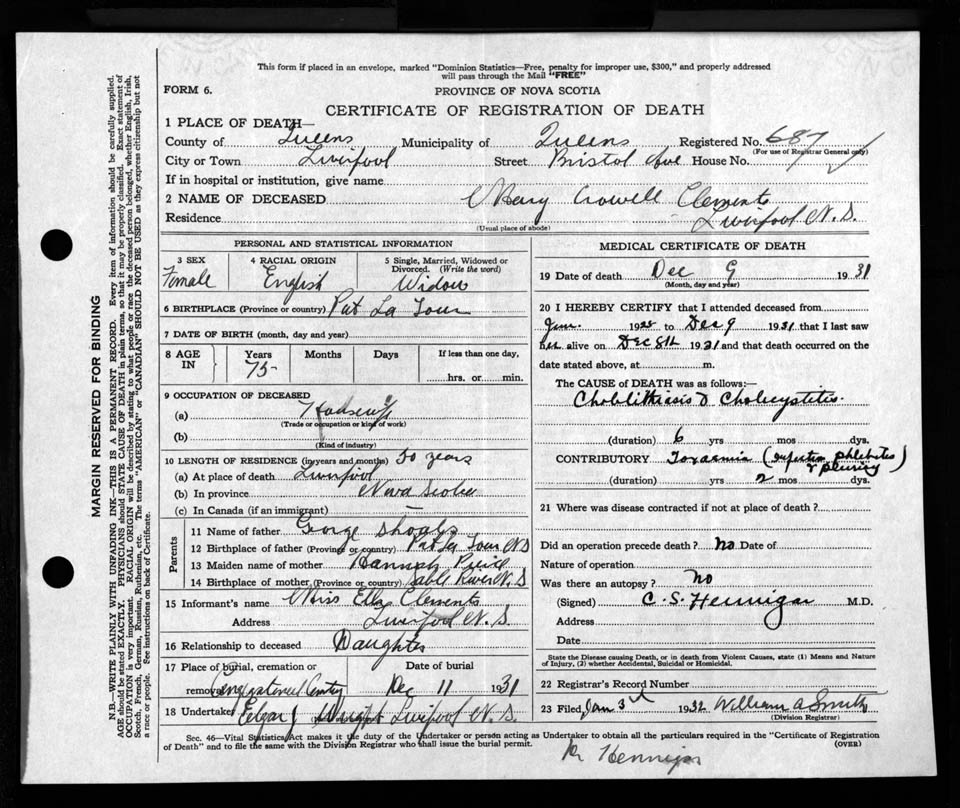 This form if placed in an envelope, marked "Dominion Statistics—Free, penalty for improper use, $300," and properly addressed
will pass through the Mail "FREE"
FORM 6.
PROVINCE OF NOVA SCOTIA
CERTIFICATE OF REGISTRATION OF DEATH
1 PLACE OF DEATH—
County of Queens Municipality of Queens Registered No. 687
(For use of Registrar General only)
City or Town Liverpool Street Bristol Ave House No.
If in hospital or institution, give name
2 NAME OF DECEASED Mary Crowell Clements
Residence Liverpool N.S.
(Usual place of abode)
MARGIN RESERVED FOR BINDING
N.B.—WRITE PLAINLY WITH UNFADING INK—THIS IS A PERMANENT RECORD. Every item of information should be carefully supplied.
AGE should be stated EXACTLY. PHYSICIANS should STATE CAUSE OF DEATH in plain terms, so that it may be properly classified. Exact statement of
OCCUPATION is very important. RACIAL ORIGIN will be described by stating to what people or race the deceased person belonged, whether English, Irish,
Scotch, French, German, Russian, Ruthenian, etc. The terms "AMERICAN" or "CANADIAN" SHOULD NOT BE USED as they express citizenship but not
a race or people. See instructions on back of Certificate.
PERSONAL AND STATISTICAL INFORMATION
3 SEX
Female
4 RACIAL ORIGIN
English
5 Single, Married, Widowed or
Divorced. (Write the word)
Widow
6 BIRTHPLACE (Province or country) Port La Tour
7 DATE OF BIRTH (month, day and year)
8 AGE IN
Years Months Days If less than one day,
75
hrs. or min.
9 OCCUPATION OF DECEASED
(a) Housewife
(Trade or occupation or kind of work)
(b)
(Kind of industry)
10 LENGTH OF RESIDENCE (in years and months) 50 years
(a) At place of death Liverpool
(b) In province Nova Scotia
(c) In Canada (if an immigrant) —
Parents
11 Name of father George
12 Birthplace of father (Province or country) Port La Tour N S
13 Maiden name of mother Hannah
14 Birthplace of mother (Province or country) Sable River N.S.
15 Informant's name Miss Ella Clements
Address Liverpool N.S.
16 Relationship to deceased Daughter
17 Place of burial, cremation or
removal
Date of burial
Dec 11 1931
18 Undertaker Edgar J Wright Liverpool N.S.
MEDICAL CERTIFICATE OF DEATH
19 Date of death Dec 9 1931
(Month, day and year)
20 I HEREBY CERTIFY that I attended deceased from
Jan. 19 to Dec 9 1931 that I last saw
her alive on Dec 8th 1931 and that death occurred on the
date stated above, at m.
The CAUSE OF DEATH was as follows:—
Cholelithiasis & Cholecystitis.
(duration) 6 yrs mos dys.
CONTRIBUTORY Toxaemia (Infection phlebitis
& pleurisy)
(duration) yrs 2 mos dys.
21 Where was disease contracted if not at place of death?
Did an operation precede death? No Date of
Nature of operation
Was there an autopsy? No
(Signed) C. S. Hennigar M.D.
Address
Date
State the Disease causing Death, or in death from Violent Causes, state (1) Means and Nature
of Injury, (2) whether Accidental, Suicidal or Homicidal.
22 Registrar's Record Number
23 Filed, Jan 3d 1932 William A Smith
(Division Registrar)
Sec. 46—Vital Statistics Act makes it the duty of the Undertaker or person acting as Undertaker to obtain all the particulars required in the "Certificate of Registration
of Death" and to file the same with the Division Registrar who shall issue the burial permit.
(OVER)
Hennigar